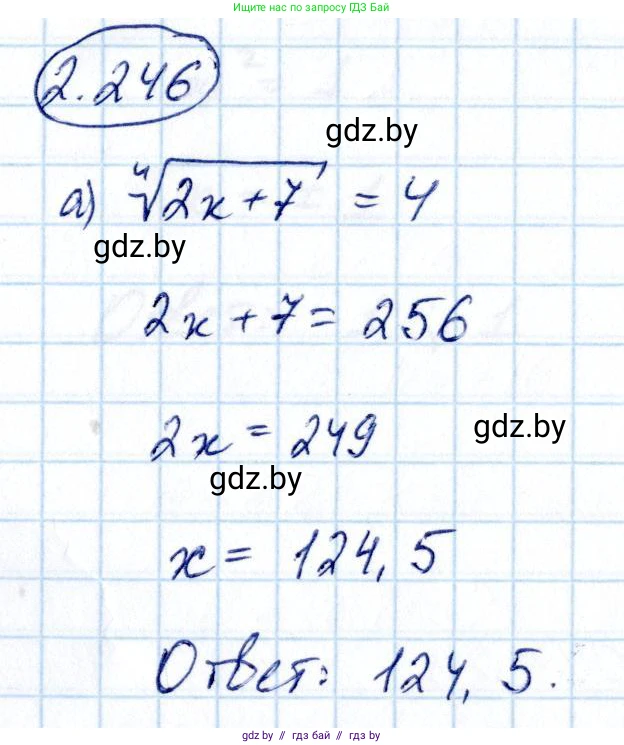 Ищите нас по запросу ГДЗ Бай
2.246
gdz.by
а) ∜(2x+7) = 4
gdz.by
2x + 7 = 256
2x = 249
gdz.by
gdz.by
x = 124,5
Ответ: 124,5.
gdz.by // гдз бай // gdz by